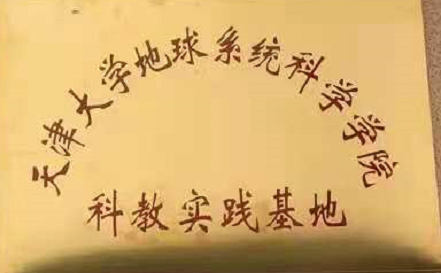 天津大学地球系统科学学院
科教实践基地